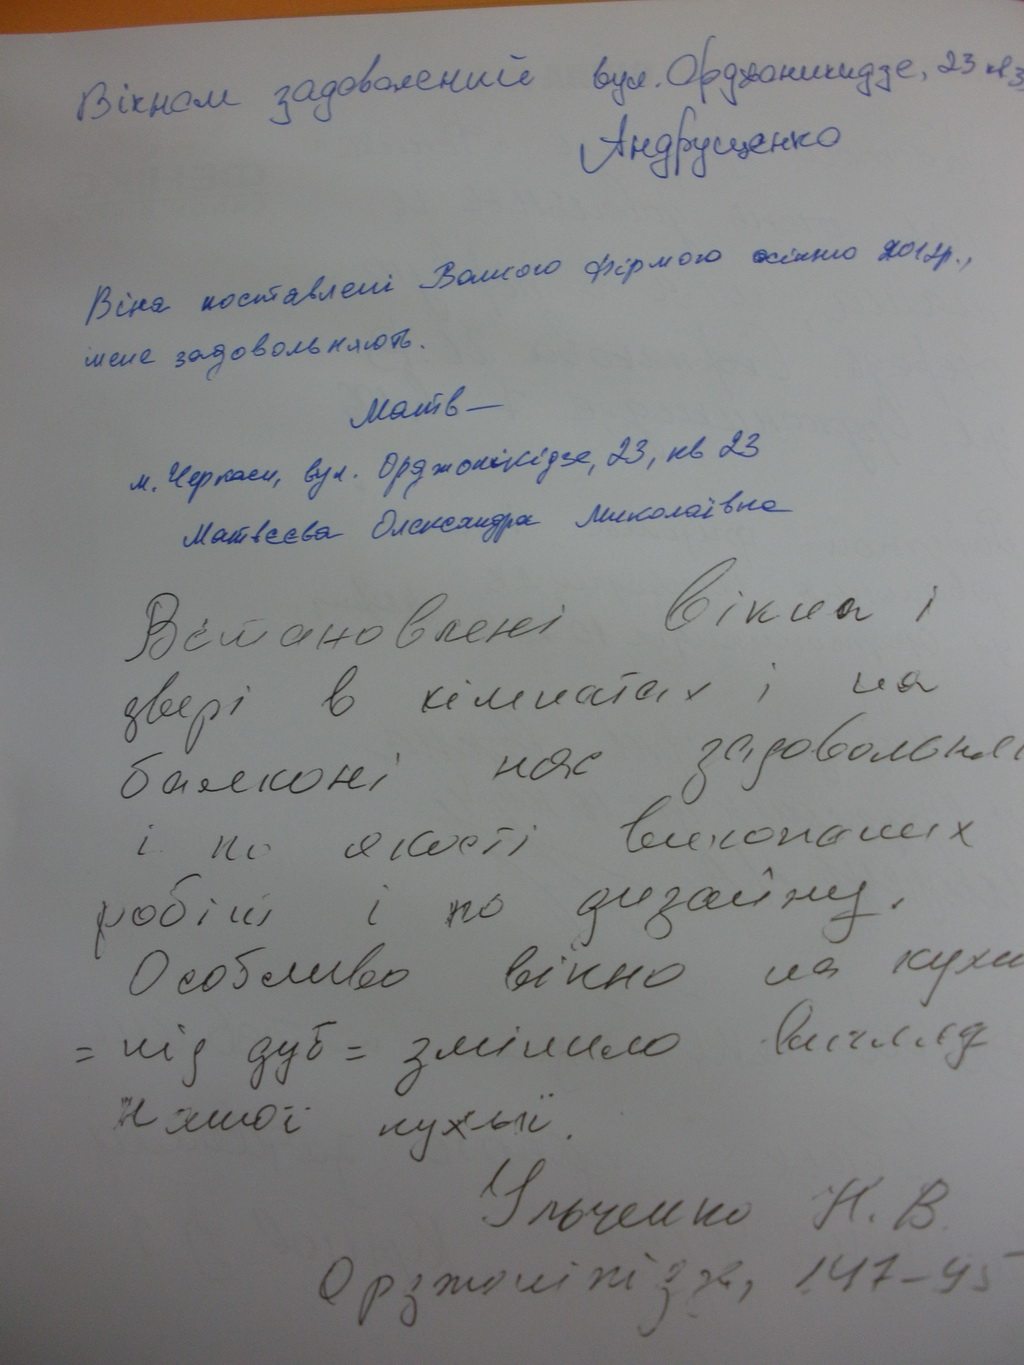 Вікном задоволений вул. Орджоникидзе, 23 кв 3
Андрущенко
Вікна поставлені Вашою фірмою осінню 2012р.,
мене задовольняють.
Матв
м. Черкаси, вул. Орджонікідзе, 23, кв 23
Матвєєва Олександра Миколаївна
Встановлені вікна і
двері в кімнатах і на
балконі нас задовольня
і по якості виконаних
робіт і по дизайну.
Особливо вікно на кухн
= під дуб = змінило вигляд
нашої кухні.
Ульченко Н. В.
Орджонікідзе, 147-45